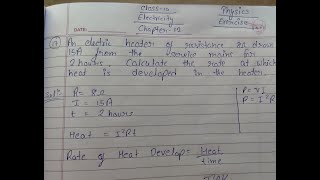 Class-10 Physics
Electricity Exercise
DATE: Chapter-12
An electric heater of resistance 8Ω draws
15A from the service mains for
2 hours. Calculate the rate at which
heat is developed in the heater.
Solⁿ: R = 8Ω
I = 15A
t = 2 hours
P = VI
P = I²R
Heat = I²Rt
Rate of Heat Develop = Heat
time